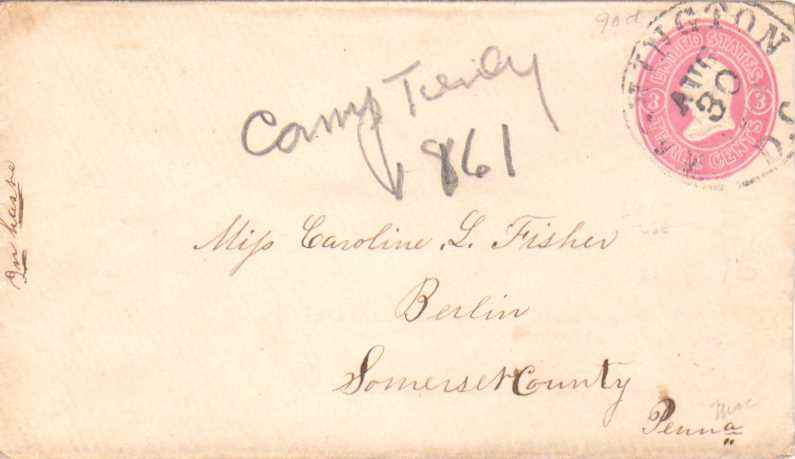 90d
WASHINGTON D.C.
AUG
30
UNITED STATES
3 3
THREE CENTS
Camp
1861
In haste
Miss Caroline L. Fisher
Berlin
Somerset County
Penna